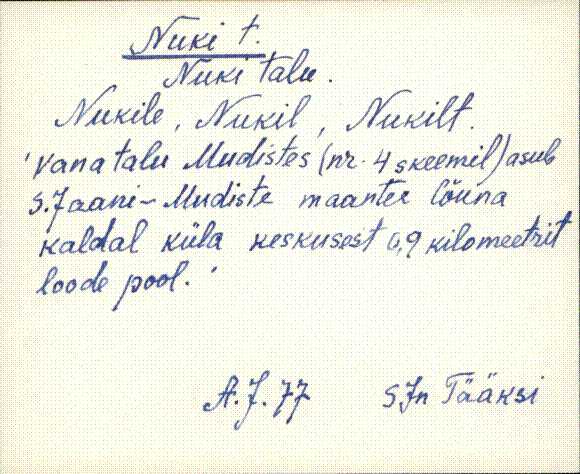 Nuki t.
Nuki talu.
Nukile, Nukil, Nukilt.
'Vana talu Mudistes (nr. 4 skeemil) asub
S.Jaani-Mudiste maantee lõuna
kaldal küla keskusest 0,9 kilomeetrit
loode pool.'
A.J. 77 SJn Tääksi